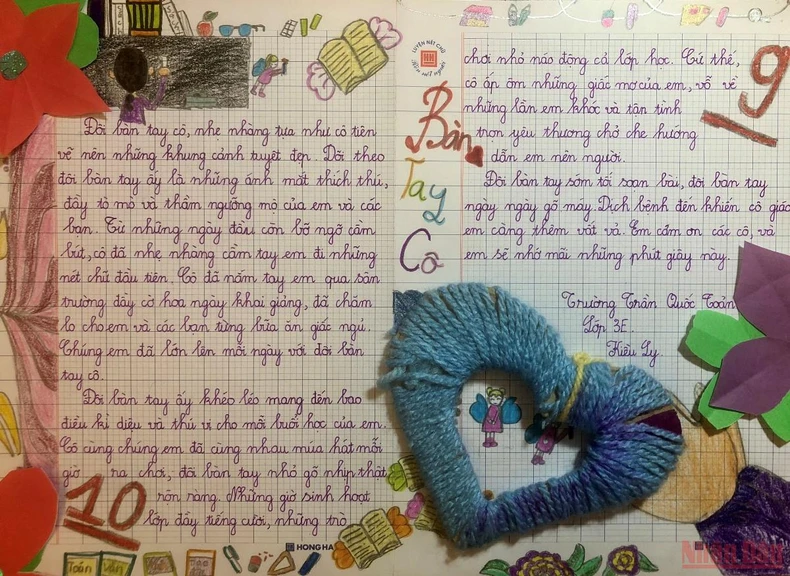 LUYỆN NÉT CHỮ
Rèn nết người
Bàn
Tay
Cô
Đôi bàn tay cô, nhẹ nhàng tựa như cô tiên
vẽ nên những khung cảnh tuyệt đẹp. Dõi theo
đôi bàn tay ấy là những ánh mắt thích thú,
đầy tò mò và thầm ngưỡng mộ của em và các
bạn. Từ những ngày đầu còn bỡ ngỡ cầm
bút, cô đã nhẹ nhàng cầm tay em đi những
nét chữ đầu tiên. Cô đã nắm tay em qua sân
trường đầy cờ hoa ngày khai giảng, đã chăm
lo cho em và các bạn từng bữa ăn giấc ngủ.
Chúng em đã lớn lên mỗi ngày với đôi bàn
tay cô.
Đôi bàn tay ấy khéo léo mang đến bao
điều kì diệu và thú vị cho mỗi buổi học của em.
Cô cùng chúng em đã cùng nhau múa hát mỗi
giờ ra chơi, đôi bàn tay nhỏ gõ nhịp thật
rộn ràng. Những giờ sinh hoạt
lớp đầy tiếng cười, những trò
10
Toán Văn
HONG HA
chơi nhỏ náo động cả lớp học. Cứ thế,
cô ấp ôm những giấc mơ của em, vỗ về
những lần em khóc và tận tình
trọn yêu thương chở che hướng
dẫn em nên người.
9
Đôi bàn tay sớm tối soạn bài, đôi bàn tay
ngày ngày gõ máy. Dịch bệnh đến khiến cô giáo
em càng thêm vất vả. Em cảm ơn các cô, và
em sẽ nhớ mãi những phút giây này.
Trường Trần Quốc Toản
Lớp 3E.
Kiều Ly.
Nhân Dân